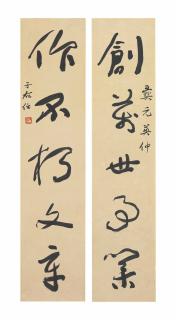 創萬世事業
奠元英仲
作不朽文章
于右任